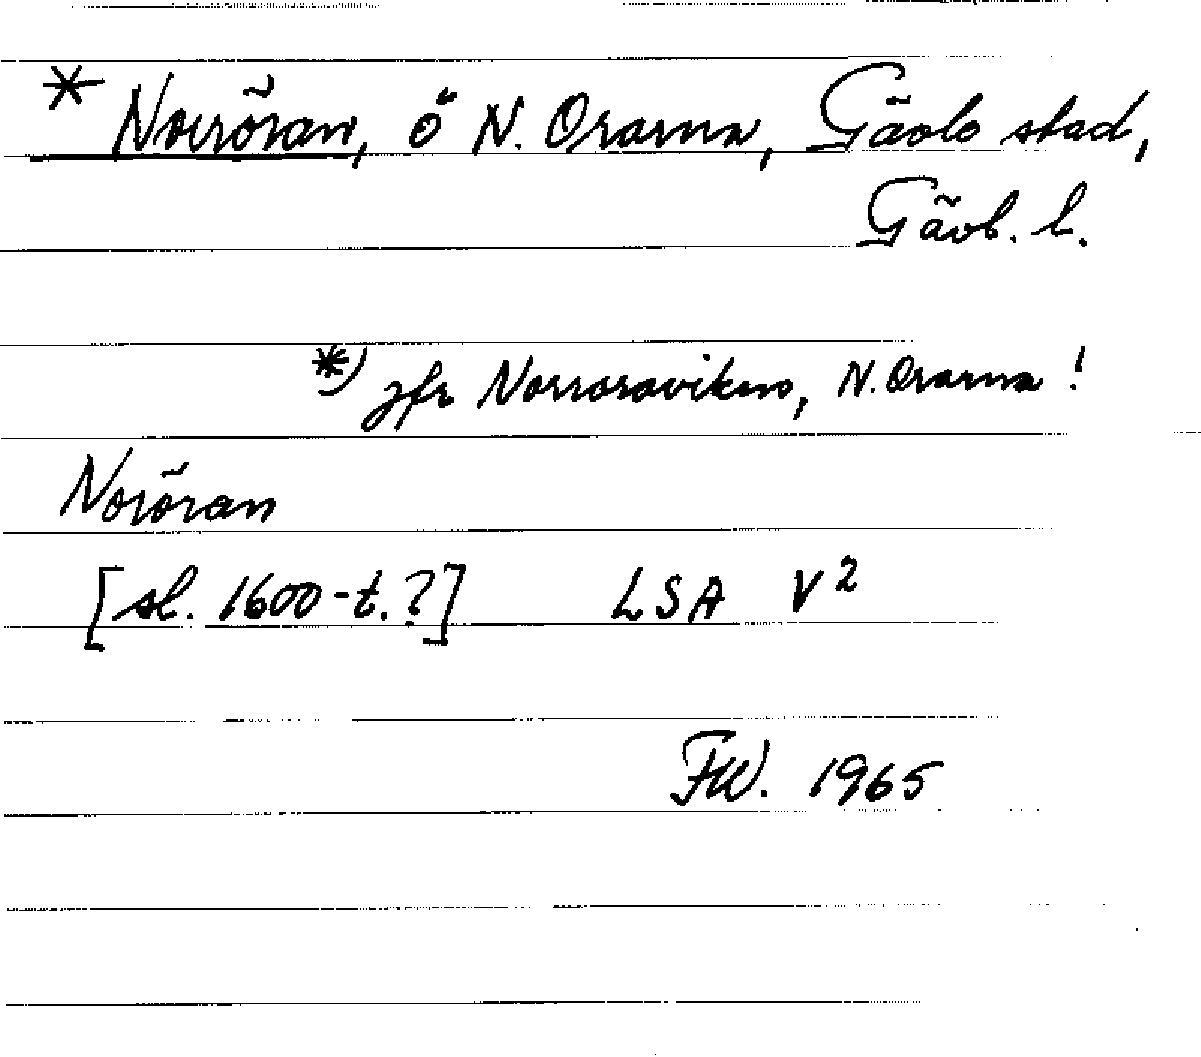 * Norröran, ö N. Orarna, Gävle stad,
Gävb. l.
*) jfr Norroraviken, N. Orarna !
Noröran
[sl. 1600-t.?] LSA V²
FW. 1965